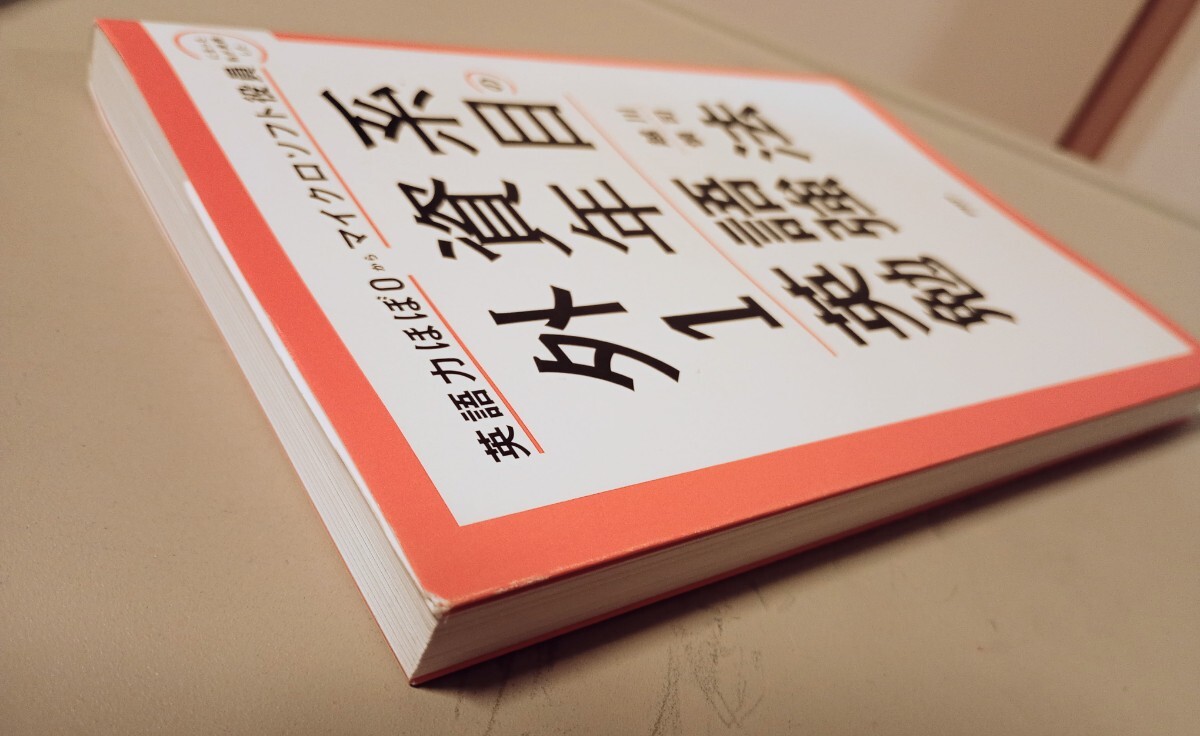 英語力ほぼ0からマイクロソフト役員
外資系
1年目の
英語
勉強法
越川
慎司